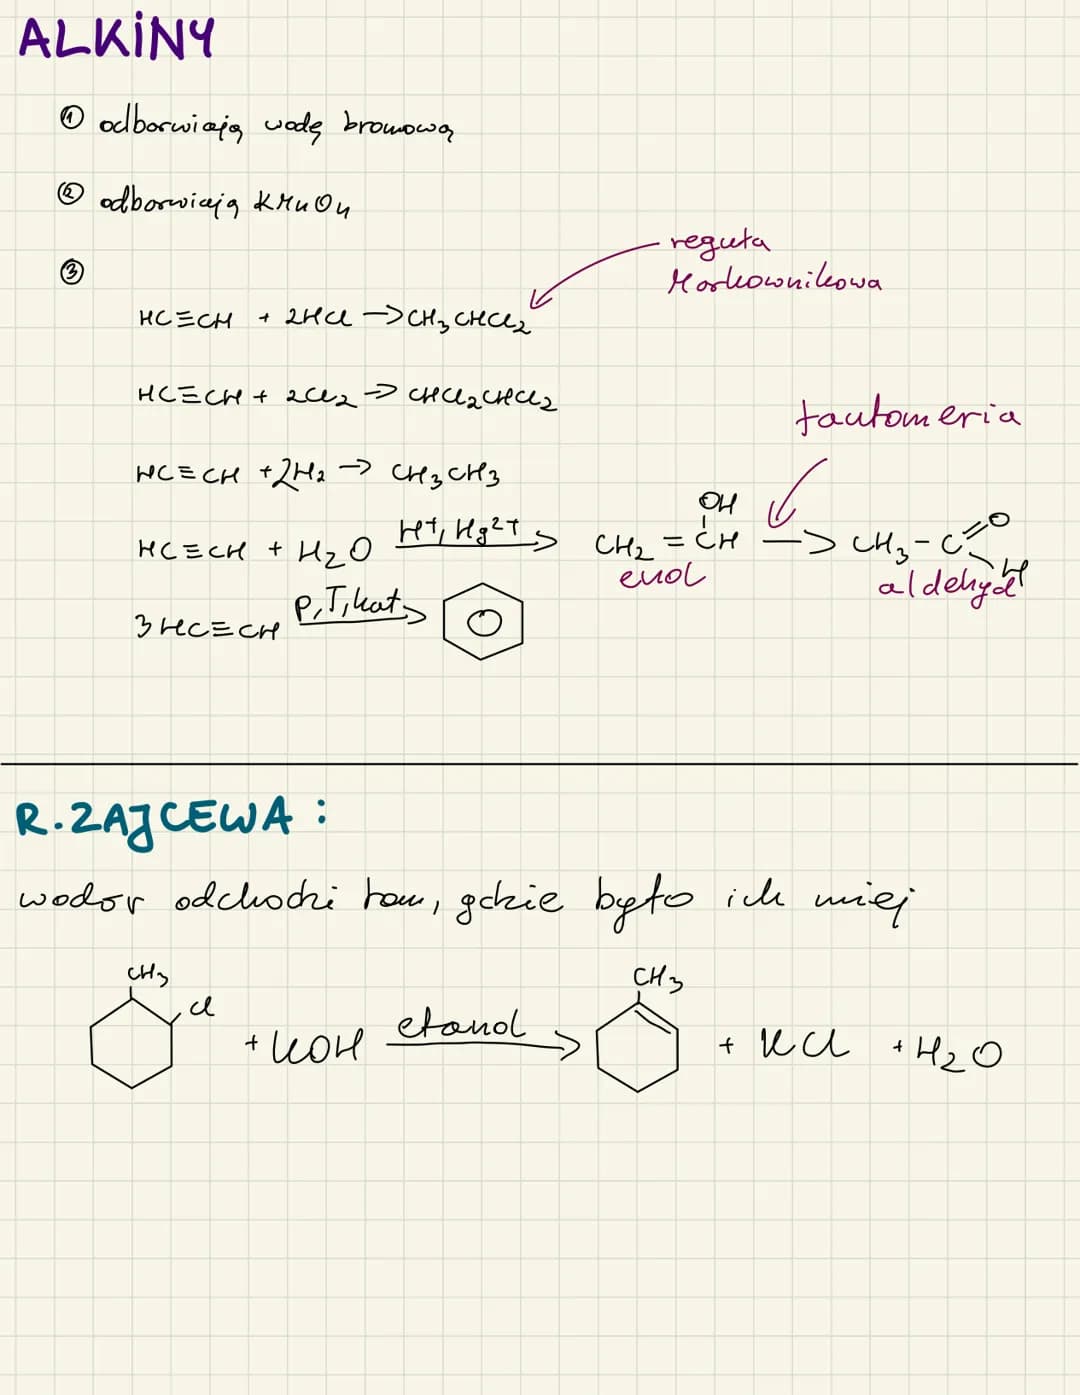 ALKINY
① odbarwiają wodę bromową
② odbarwiają KMnO4
③
reguła
Markownikowa
HC≡CH + 2HCl → CH3CHCl2
HC≡CH + 2Cl2 → CHCl2CHCl2
tautomeria
HC≡CH + 2H2 → CH3CH3
OH
HC≡CH + H2O H+, Hg2+ → CH2 = CH → CH3 - C O H
enol aldehyd
3HC≡CH p,T,kat →
R. ZAJCEWA :
wodór odchodzi tam, gdzie było ich miej
CH3 CH3
Cl
+ KOH etanol → + KCl + H2O